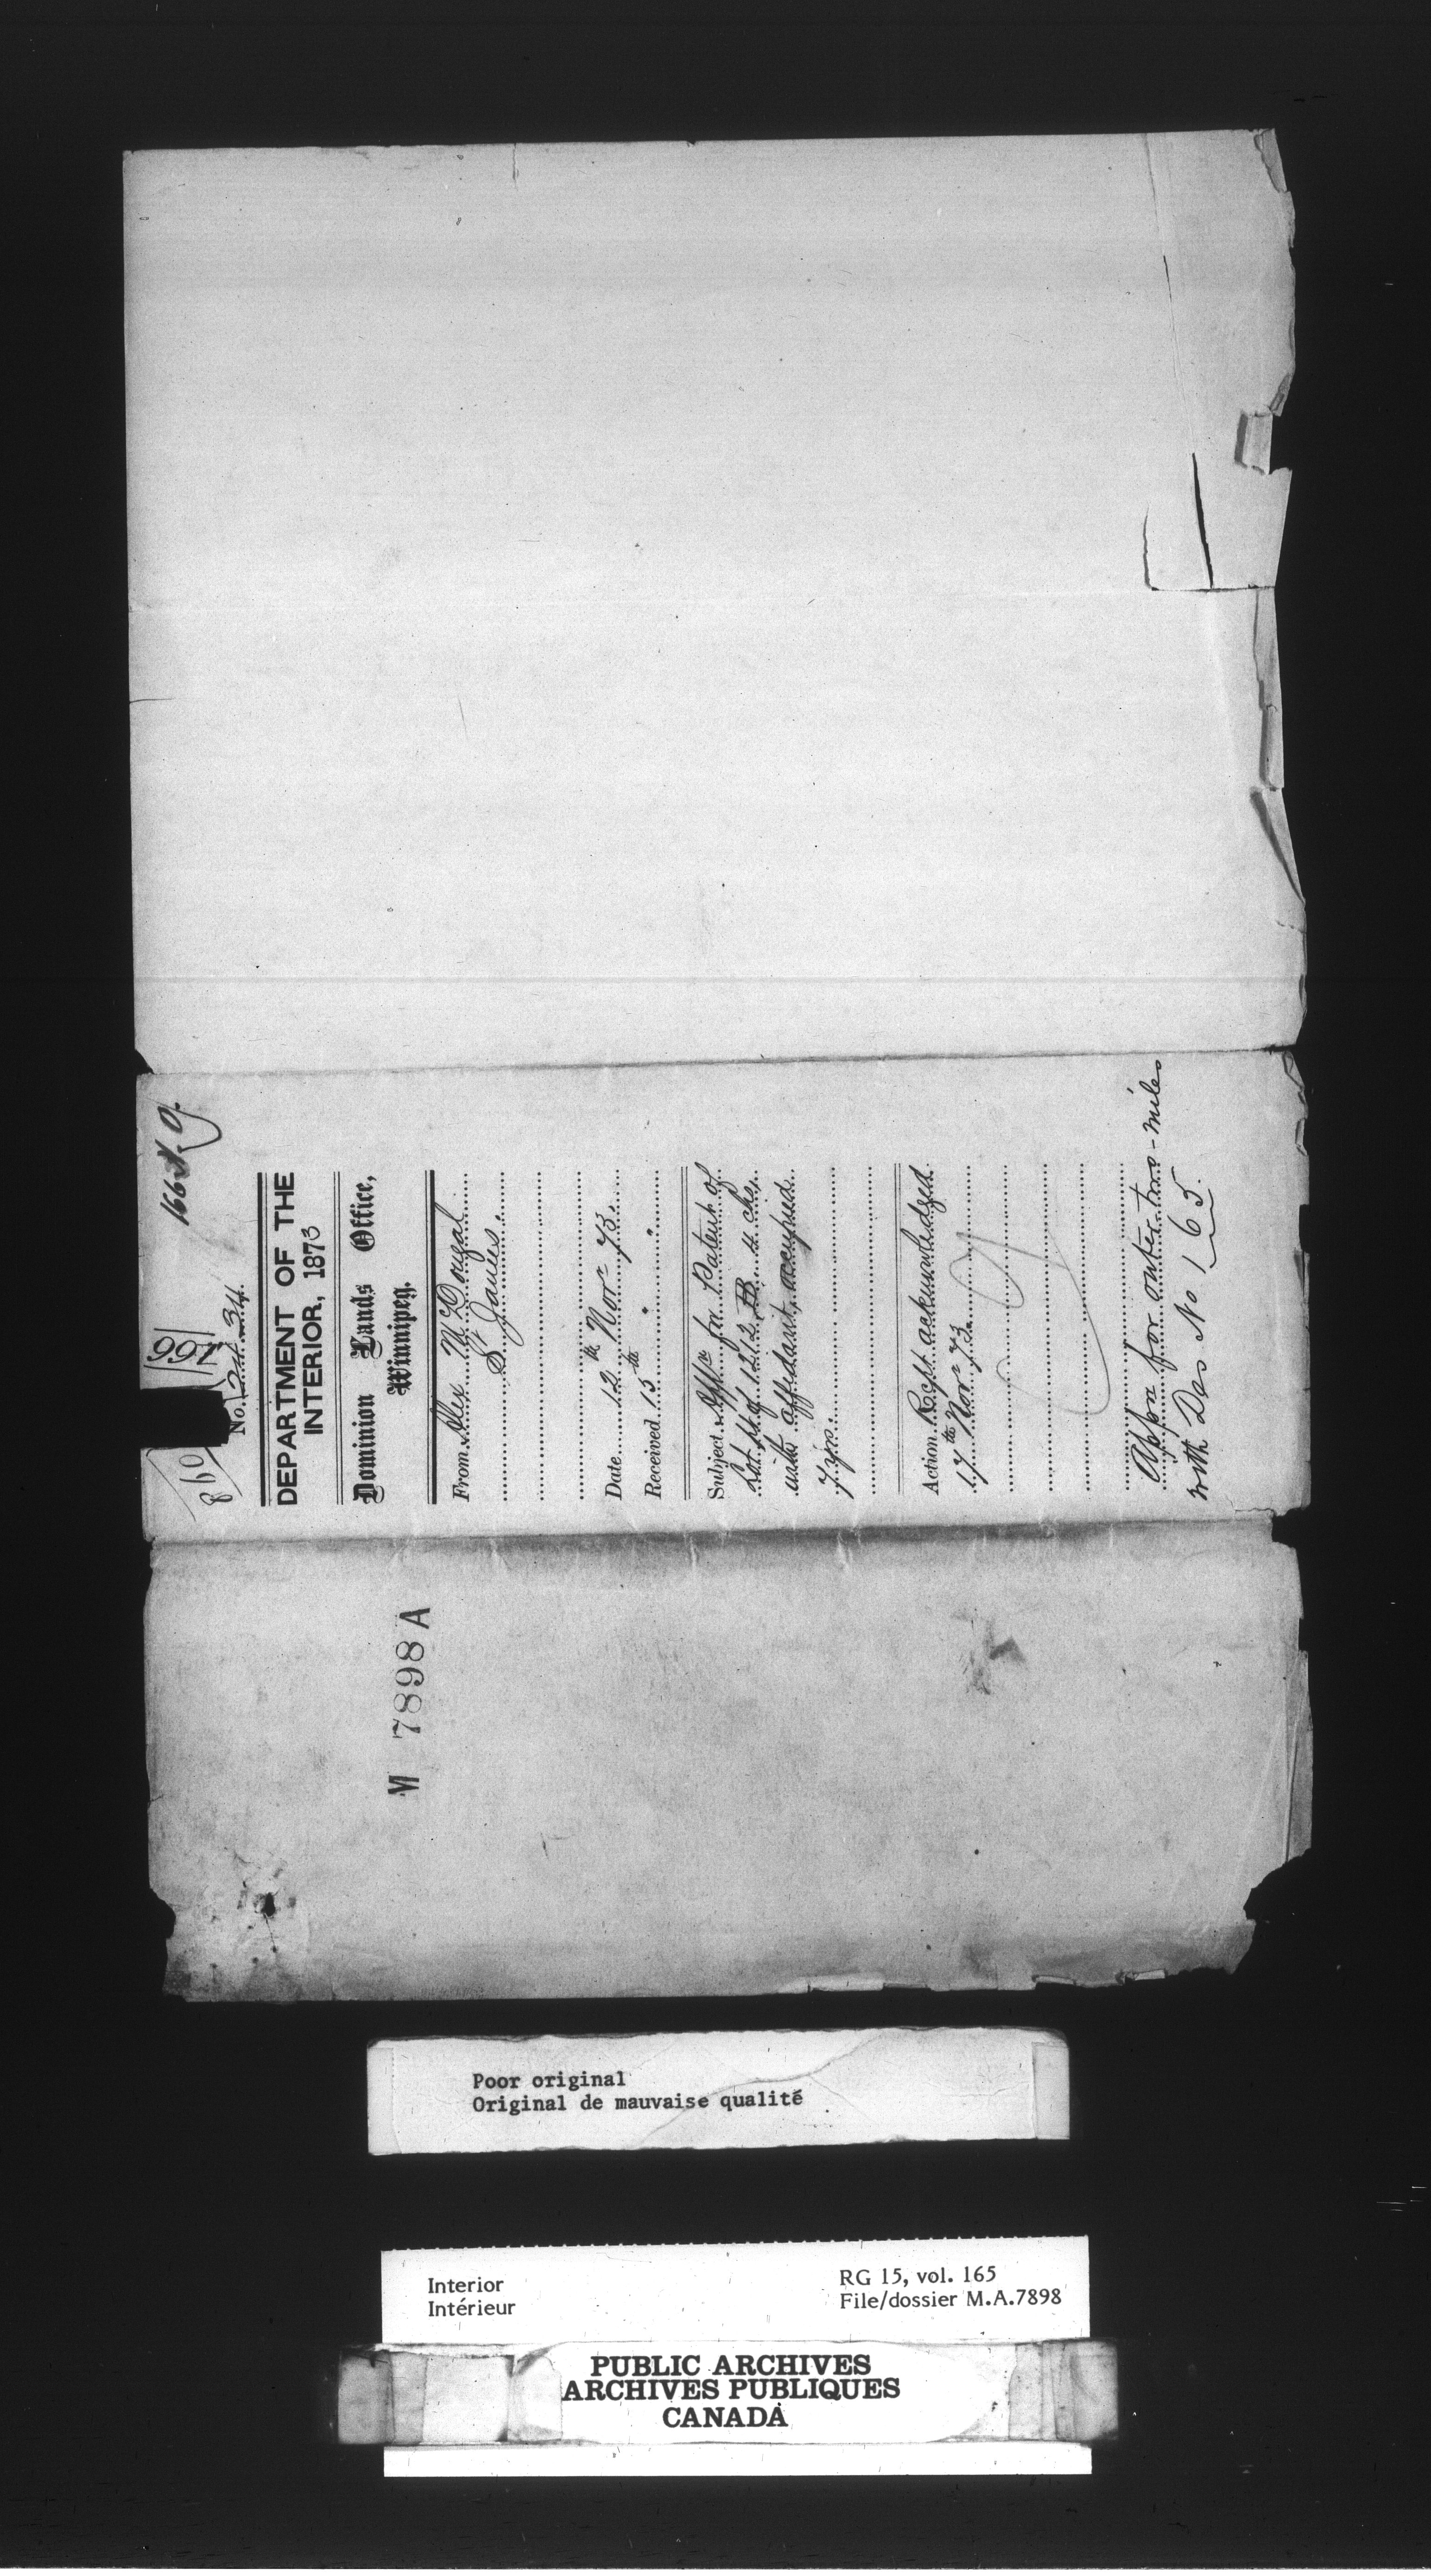 No.
DEPARTMENT OF THE
INTERIOR, 1873
Dominion Lands Office,
Winnipeg.
From Alex McDougal
St James.
Date 12th Novr 73.
Received 15th " "
Subject Appn for Patent of
Lot pt of 1212 4 chs,
with affidavit, occupied
7 yrs.
Action Rcpt acknowledged
17th Novr 73.
Appn for outer two-miles
with Des No 165.
M 7898 A
Poor original
Original de mauvaise qualité
Interior
Intérieur
RG 15, vol. 165
File/dossier M.A.7898
PUBLIC ARCHIVES
ARCHIVES PUBLIQUES
CANADA